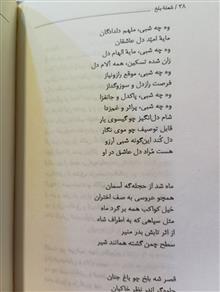 ۲۸ / شعلهٔ بلخ
وه چه شبی، ملهم دلدادگان
مایهٔ امید دل عاشقان
وه چه شبی، مایهٔ الهام دل
زان شده تسکین، همه آلام دل
وه چه شبی، موقع رازونیاز
فرصت رازدل و سوزوگداز
وه چه شبی، پاکدل و جانفزا
وه چه شبی، پراثر و غمزدا
شام دل‌انگیز چو گیسوی یار
قابل توصیف چو موی نگار
دل کند این‌گونه شبی آرزو
هست مراد دل عاشق در او
ماه شد از حجله‌گه آسمان
همچو عروسی به صف اختران
خیل کواکب همه بر گرد ماه
مثل سپاهی که به اطراف شاه
از اثر تابش بدر منیر
سطح چمن گشته همانند شیر
قصر شه بلخ چو باغ جنان
جلوه‌گر اندر نظر خاکیان